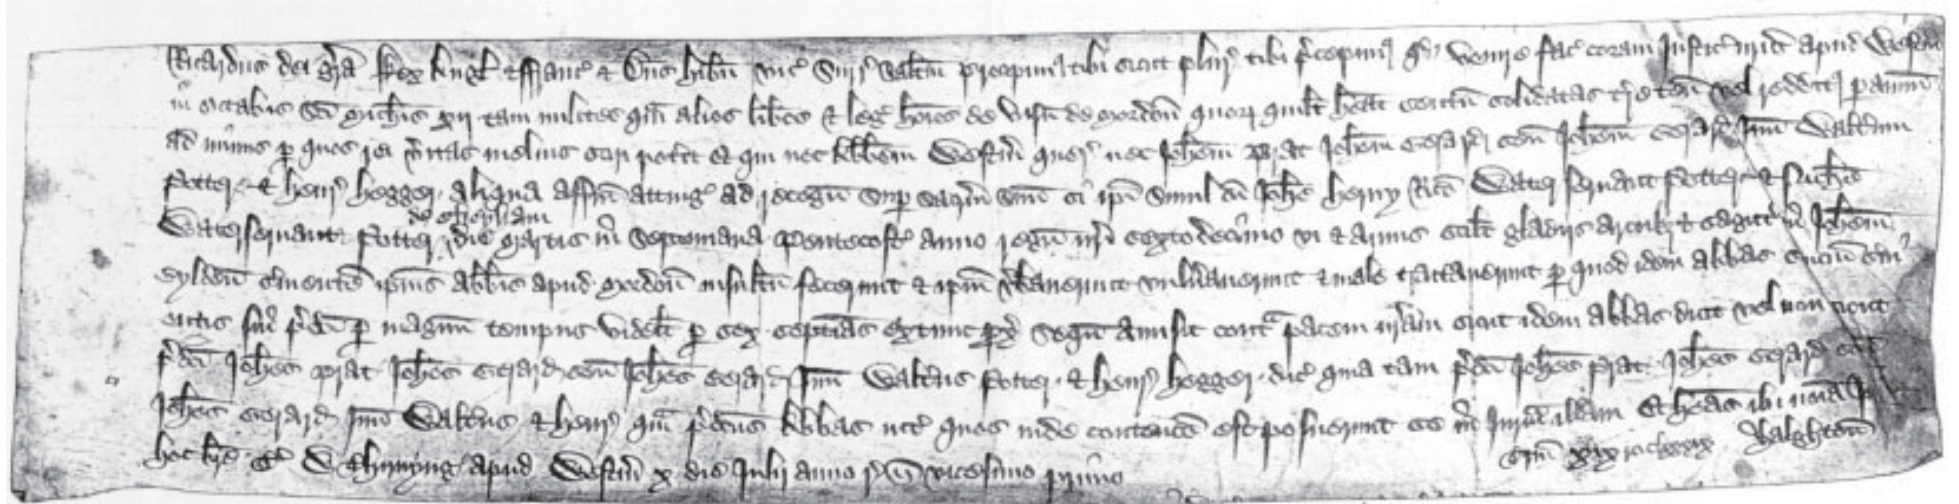 Ricardus dei gra Rex Angl & Franc & Dns Hibn vic Surr saltm precepim tibi sicut plur tibi precepim qd venire fac coram Justic nris apud Westm
in octabis Sci Michis xij tam milites qm alios libos & leg hoies de visu de Mordon quor quilt heat centu solidatas tre ten vel reddit p annu
ad minus p quos rei vitas melius sciri potit Et qui nec Abbem Westm quer nec Johem Prat Johem Gerard sen Johem Gerard Jun Waltum
Potter & Henr Hegger aliqua affin atting ad recogn sup sacrm suu si ipi simul cu Johe Henry Rico Waterservant Potter & Riche
Waterservant Potter die Martis in septimana Pentecost anno regni nri sextodecimo vi & armis scilt gladiis arcub & sagitt in Johem
de Chepham
Eylden svientem ipius Abbis apud Mordon insultu fecerunt & ipm vbaverunt vulnaverunt & male tractaverunt p quod idem Abbas svicium svi
entis sui pdci p magnum tempus videlt p sex septias extunc px sequn amisit conta pacem nram sicut idem Abbas dicit vel non sicut
pdci Johes Prat Johes Gerard sen Johes Gerard Jun Waltus Potter & Henr Hegger dic quia tam pdci Johes Prat Johes Gerard sen
Johes Gerard Jun Waltus & Henr qm pdcus Abbas int quos inde contenco est posuerunt se in Juram illam Et heas ibi noia Jur
hoc bre T W Thirnyng apud Westm x die Julij anno r n vicesimo primo
Halghton